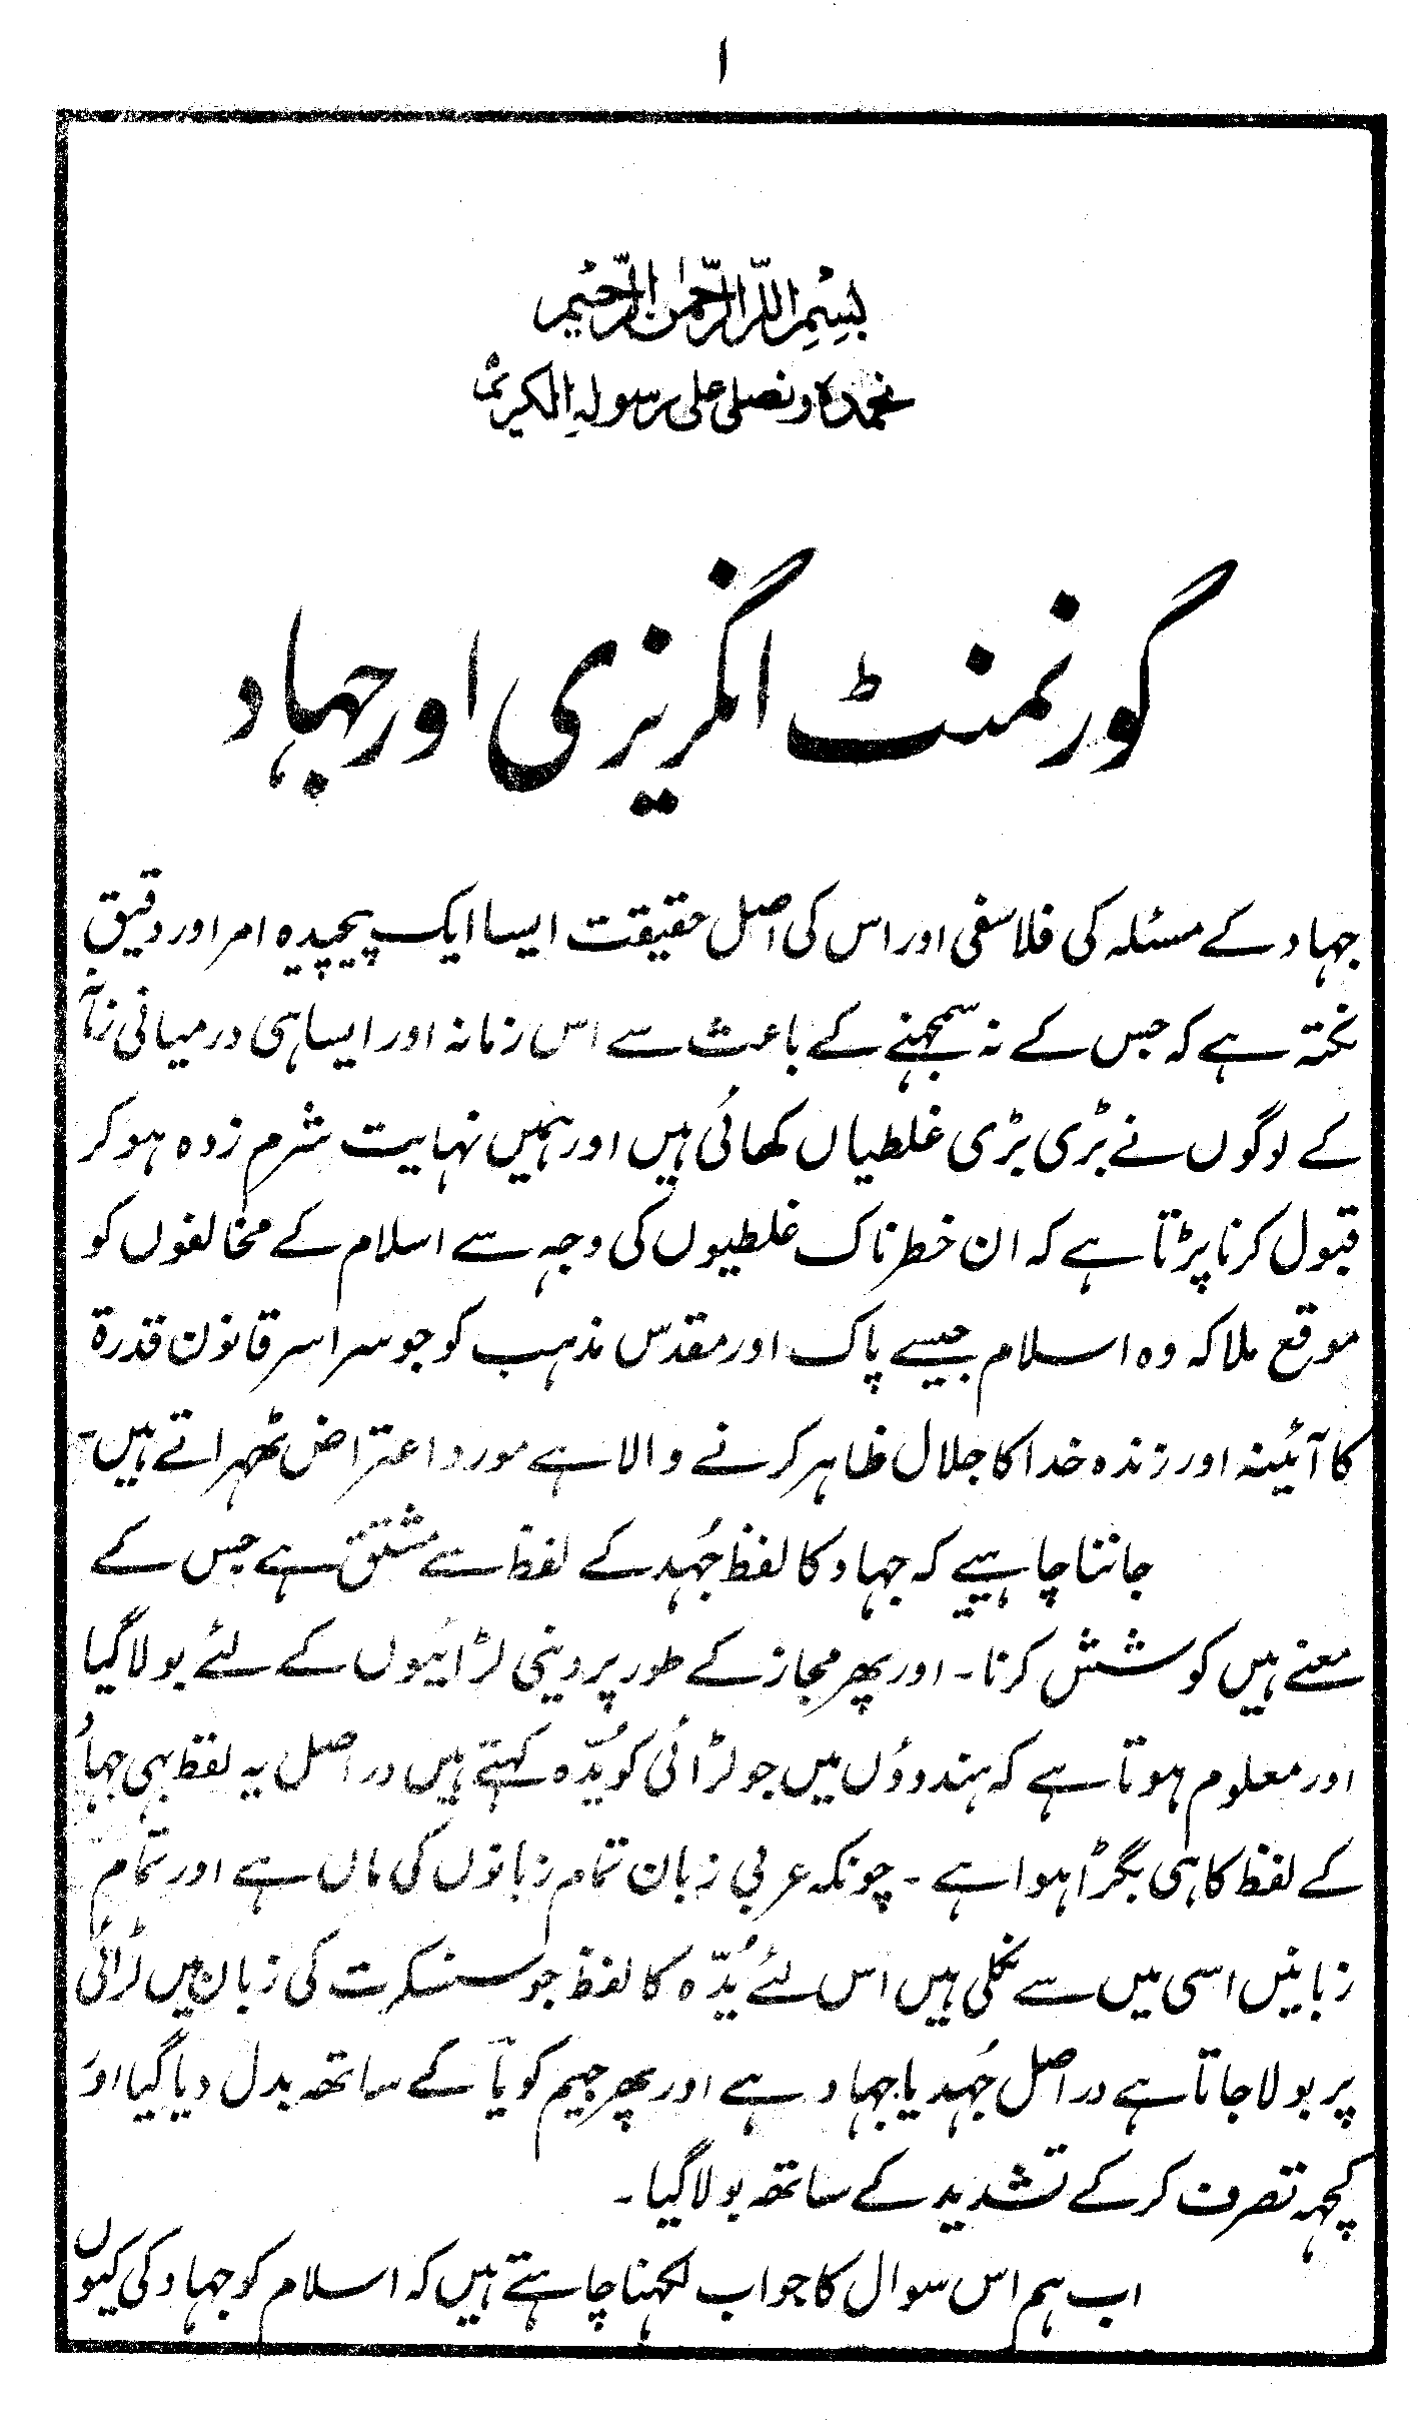 ۱
بِسْمِ اللّٰہِ الرَّحْمٰنِ الرَّحِیْمِ
نحمدہ و نصلی علی رسولہِ الکریم
گورنمنٹ انگریزی اور جہاد
جہاد کے مسئلہ کی فلاسفی اور اس کی اصل حقیقت ایسا ایک پیچیدہ امر اور دقیق
نکتہ ہے کہ جس کے نہ سمجہنے کے باعث سے اس زمانہ اور ایسا ہی درمیانی زمانہ
کے لوگوں نے بڑی بڑی غلطیاں کھائی ہیں اور ہمیں نہایت شرم زدہ ہو کر
قبول کرنا پڑتا ہے کہ ان خطرناک غلطیوں کی وجہ سے اسلام کے مخالفوں کو
موقع ملا کہ وہ اسلام جیسے پاک اور مقدس مذہب کو جو سراسر قانون قدرۃ
کا آئینہ اور زندہ خدا کا جلال ظاہر کرنے والا ہے مورد اعتراض ٹھہراتے ہیں۔
جاننا چاہیے کہ جہاد کا لفظ جُہد کے لفظ سے مشتق ہے جس کے
معنے ہیں کوشش کرنا۔ اور پھر مجاز کے طور پر دینی لڑائیوں کے لئے بولا گیا
اور معلوم ہوتا ہے کہ ہندوؤں میں جو لڑائی کو یُدّہ کہتے ہیں دراصل یہ لفظ بہی جہاد
کے لفظ کا ہی بگڑا ہوا ہے۔ چونکہ عربی زبان تمام زبانوں کی ماں ہے اور تمام
زبانیں اسی میں سے نکلی ہیں اس لئے یُدّہ کا لفظ جو سنسکرت کی زبان میں لڑائی
پر بولا جاتا ہے دراصل جُہد یا جہاد ہے اور پھر جیم کو یاؔ کے ساتھ بدل دیا گیا اور
کچہہ تصرف کر کے تشدید کے ساتھ بولا گیا۔
اب ہم اس سوال کا جواب لکہنا چاہتے ہیں کہ اسلام کو جہاد کی کیوں